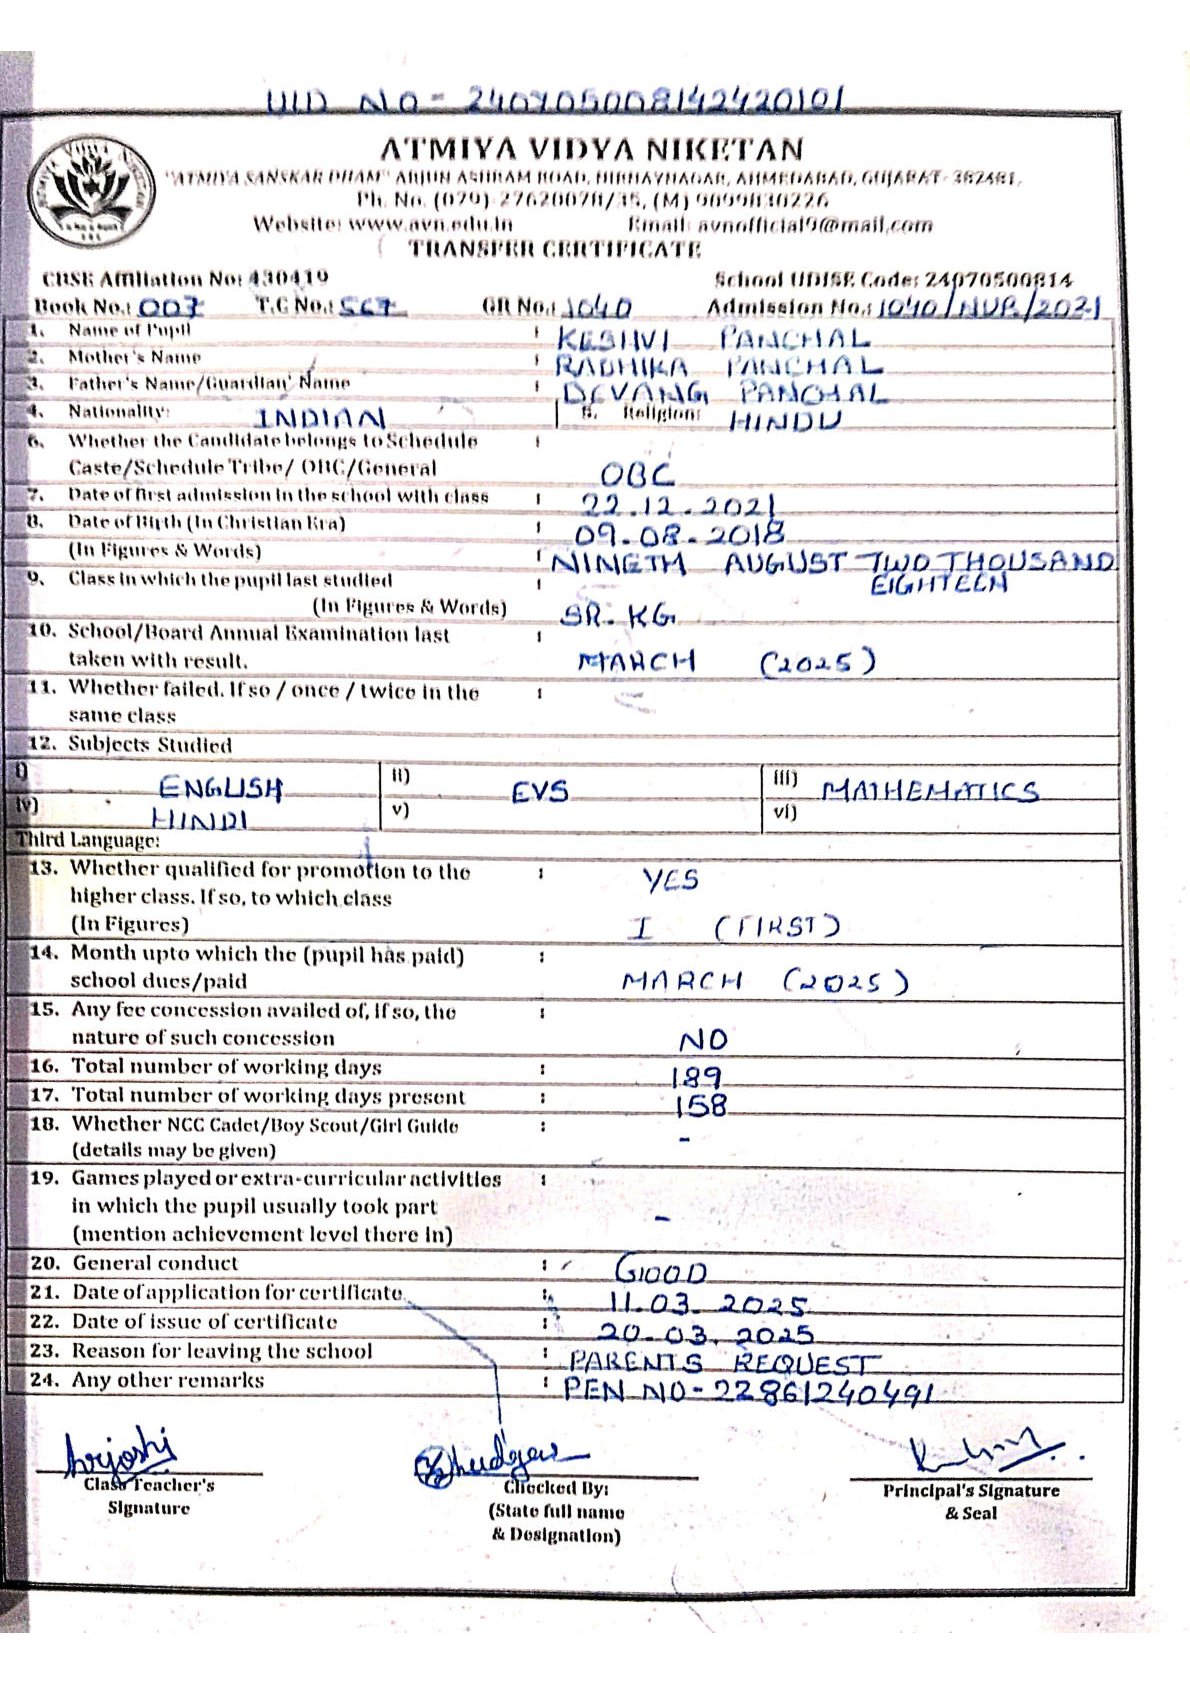 UID NO - 240705008142420101
ATMIYA VIDYA NIKETAN
"ATMIYA SANSKAR DHAM" ARJUN ASHRAM ROAD, NIRNAYNAGAR, AHMEDABAD, GUJARAT- 382481,
Ph. No. (079) 27620078/35, (M) 9099830226
Website: www.avn.edu.in Email: avnofficial9@mail.com
TRANSFER CERTIFICATE
CBSE Affiliation No: 430419 School UDISE Code: 24070500814
Book No.: 007 T.C No.: 567 GR No.: 1040 Admission No.: 1040/NUR/2021
1. Name of Pupil : KESHVI PANCHAL
2. Mother's Name : RADHIKA PANCHAL
3. Father's Name/Guardian' Name : DEVANG PANCHAL
4. Nationality: INDIAN 5. Religion: HINDU
6. Whether the Candidate belongs to Schedule :
Caste/Schedule Tribe/ OBC/General OBC
7. Date of first admission in the school with class : 22.12.2021
8. Date of Birth (In Christian Era) : 09.08.2018
(In Figures & Words) : NINETH AUGUST TWO THOUSAND
EIGHTEEN
9. Class in which the pupil last studied :
(In Figures & Words) SR. KG
10. School/Board Annual Examination last :
taken with result. MARCH (2025)
11. Whether failed. If so / once / twice in the :
same class
12. Subjects Studied
i) ENGLISH ii) EVS iii) MATHEMATICS
iv) HINDI v) vi)
Third Language:
13. Whether qualified for promotion to the : YES
higher class. If so, to which class
(In Figures) I (FIRST)
14. Month upto which the (pupil has paid) :
school dues/paid MARCH (2025)
15. Any fee concession availed of, if so, the :
nature of such concession NO
16. Total number of working days : 189
17. Total number of working days present : 158
18. Whether NCC Cadet/Boy Scout/Girl Guide : -
(details may be given)
19. Games played or extra-curricular activities :
in which the pupil usually took part -
(mention achievement level there in)
20. General conduct : GOOD
21. Date of application for certificate : 11.03.2025
22. Date of issue of certificate : 20.03.2025
23. Reason for leaving the school : PARENTS REQUEST
24. Any other remarks : PEN NO - 22861240491
Class Teacher's Checked By: Principal's Signature
Signature (State full name & Seal
& Designation)